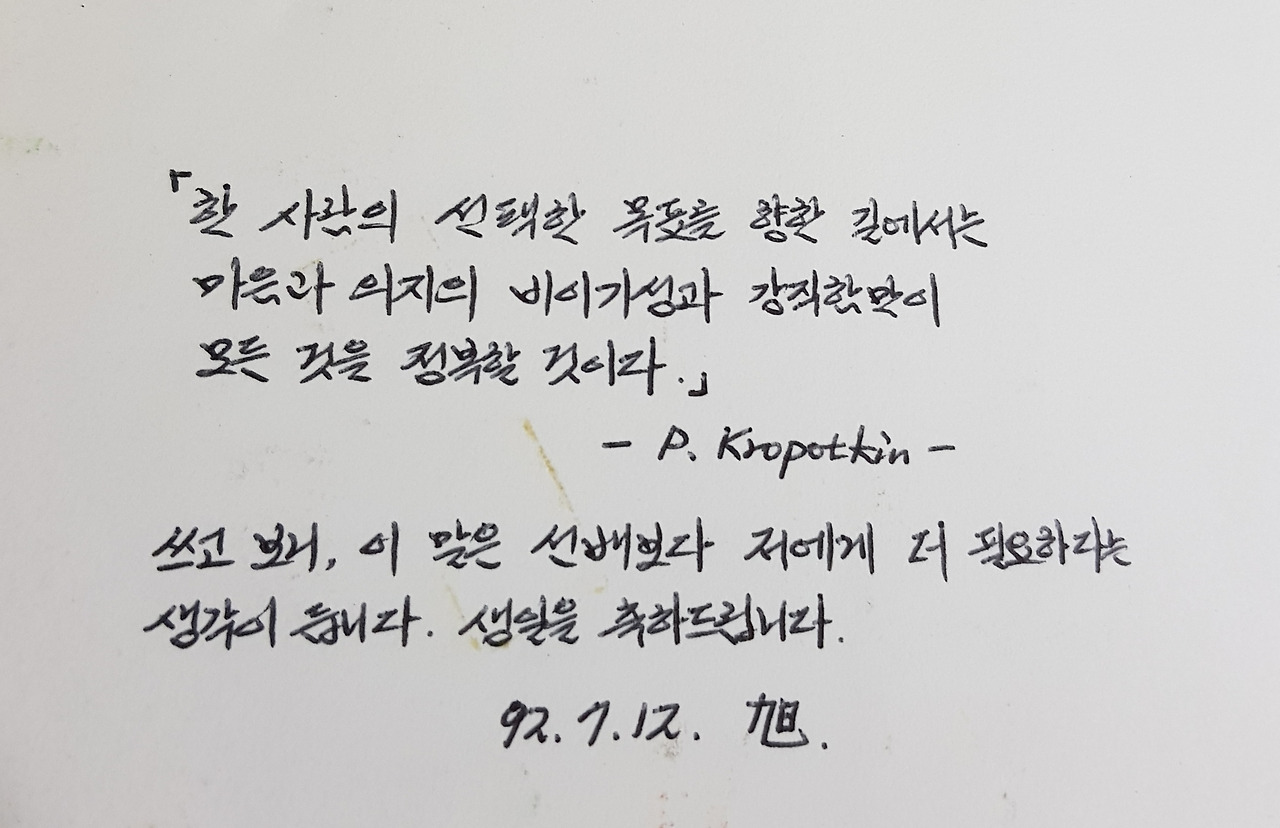 「한 사람의 선택한 목표를 향한 길에서는
마음과 의지의 비이기성과 강직함만이
모든 것을 정복할 것이다.」
- P. Kropotkin -
쓰고 보니, 이 말은 선배보다 저에게 더 필요하다는
생각이 듭니다. 생일을 축하드립니다.
92. 7. 12. 旭.